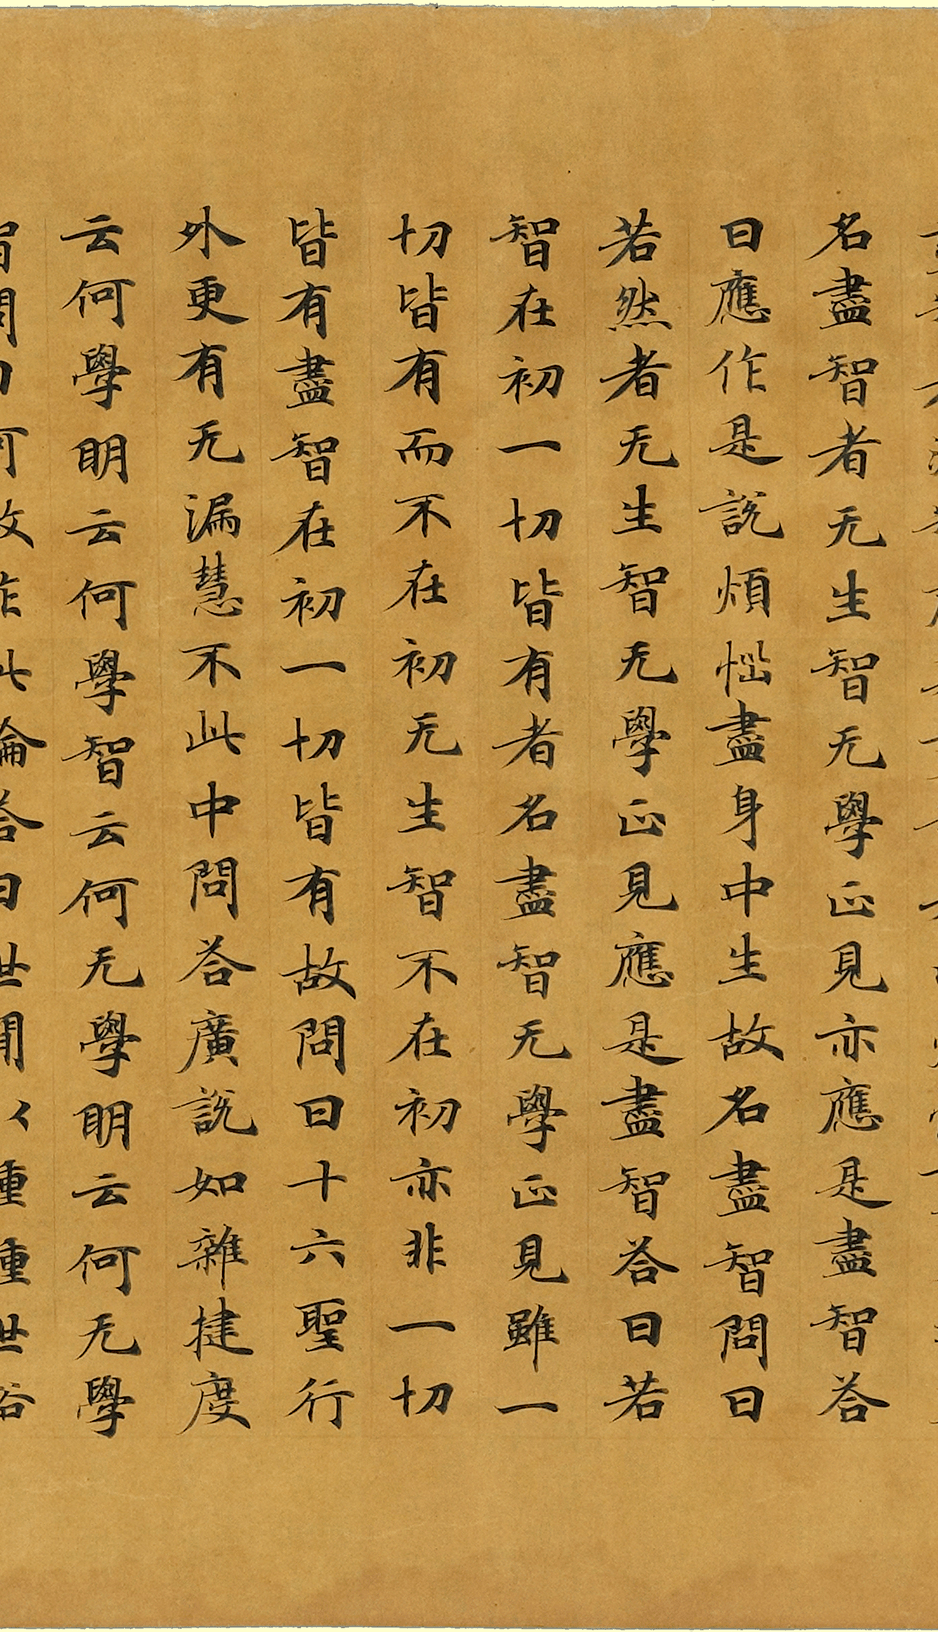 名盡智者无生智无學正見亦應是盡智荅
曰應作是說煩惱盡身中生故名盡智問曰
若然者无生智无學正見應是盡智荅曰若
智在初一切皆有者名盡智无學正見雖一
切皆有而不在初无生智不在初亦非一切
皆有盡智在初一切皆有故問曰十六聖行
外更有无漏慧不此中問荅廣說如雜揵度
云何學明云何學智云何无學明云何无學
智問曰何故作此論荅曰世間以種種世俗